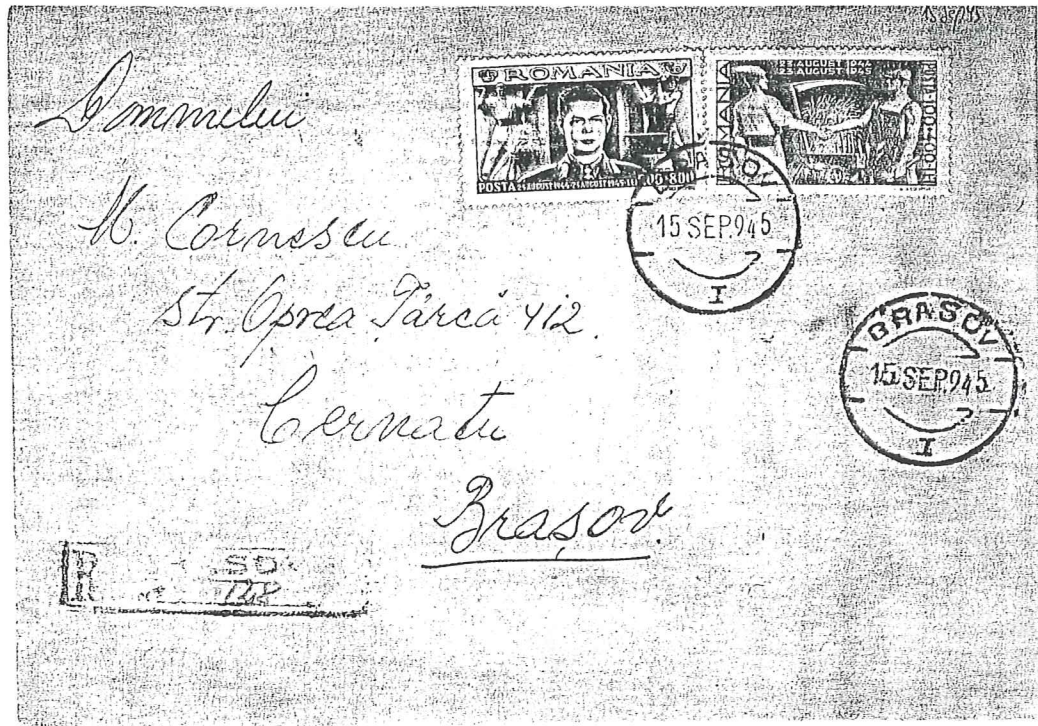 Domnului
M. Cornescu
Str. Oprea Târcă 412.
Cernatu
Brașov.
ROMANIA
POSTA 23 AUGUST 1944-23 AUGUST 1945
23 AUGUST 1944
23 AUGUST 1945
ROMANIA
BRASOV
15 SEP.945
I
BRASOV
15 SEP.945
I
R